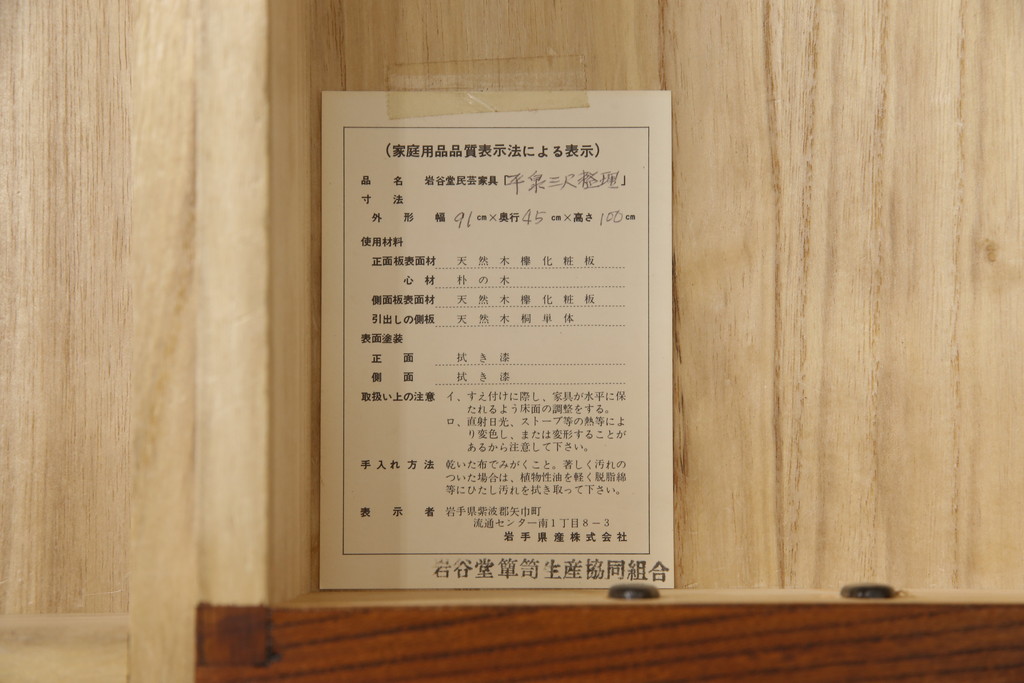 （家庭用品品質表示法による表示）
品名 岩谷堂民芸家具「平泉三尺整理」
寸法
外形 幅 91 cm×奥行 45 cm×高さ 100 cm
使用材料
正面板表面材 天然木欅化粧板
心材 朴の木
側面板表面材 天然木欅化粧板
引出しの側板 天然木桐単体
表面塗装
正面 拭き漆
側面 拭き漆
取扱い上の注意 イ、すえ付けに際し、家具が水平に保
たれるよう床面の調整をする。
ロ、直射日光、ストーブ等の熱等によ
り変色し、または変形することが
あるから注意して下さい。
手入れ方法 乾いた布でみがくこと。著しく汚れの
ついた場合は、植物性油を軽く脱脂綿
等にひたし汚れを拭き取って下さい。
表示者 岩手県紫波郡矢巾町
流通センター南1丁目8－3
岩手県産株式会社
岩谷堂箪笥生産協同組合